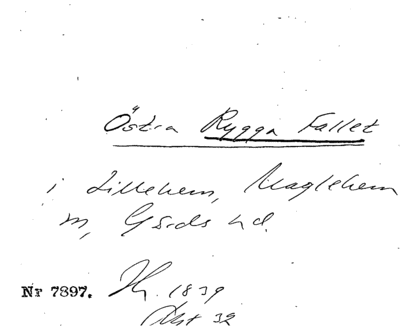 Östra Rygga Fallet
i Lillehem, Maglehem
m, Gärds hd.
Nr 7897. Hy. 1839
Akt 32